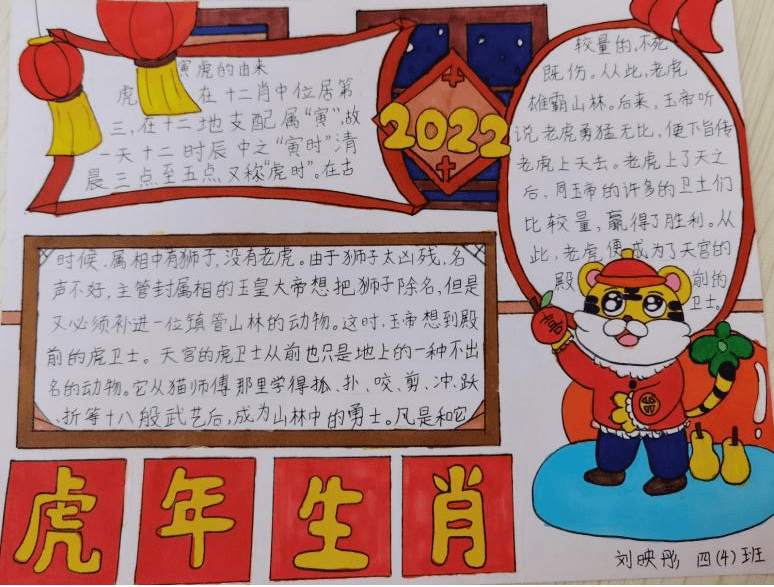 寅虎的由来
虎 在十二肖中位居第
三,在十二地支配属“寅”,故
一天十二时辰中之“寅时”清
晨三点至五点又称“虎时”。在古
2022
时候,属相中有狮子,没有老虎。由于狮子太凶残,名
声不好,主管封属相的玉皇大帝想把狮子除名,但是
又必须补进一位镇管山林的动物。这时,玉帝想到殿
前的虎卫士。天宫的虎卫士从前也只是地上的一种不出
名的动物。它从猫师傅那里学得抓、扑、咬、剪、冲、跃
、折等十八般武艺后,成为山林中的勇士。凡是和它
较量的,不死
既伤。从此,老虎
雄霸山林。后来,玉帝听
说老虎勇猛无比,便下旨传
老虎上天去。老虎上了天之
后,同玉帝的许多的卫士们
比较量,赢得了胜利。从
此,老虎便成为了天宫的
殿 前的
卫士。
虎年生肖
刘映彤 四(4)班